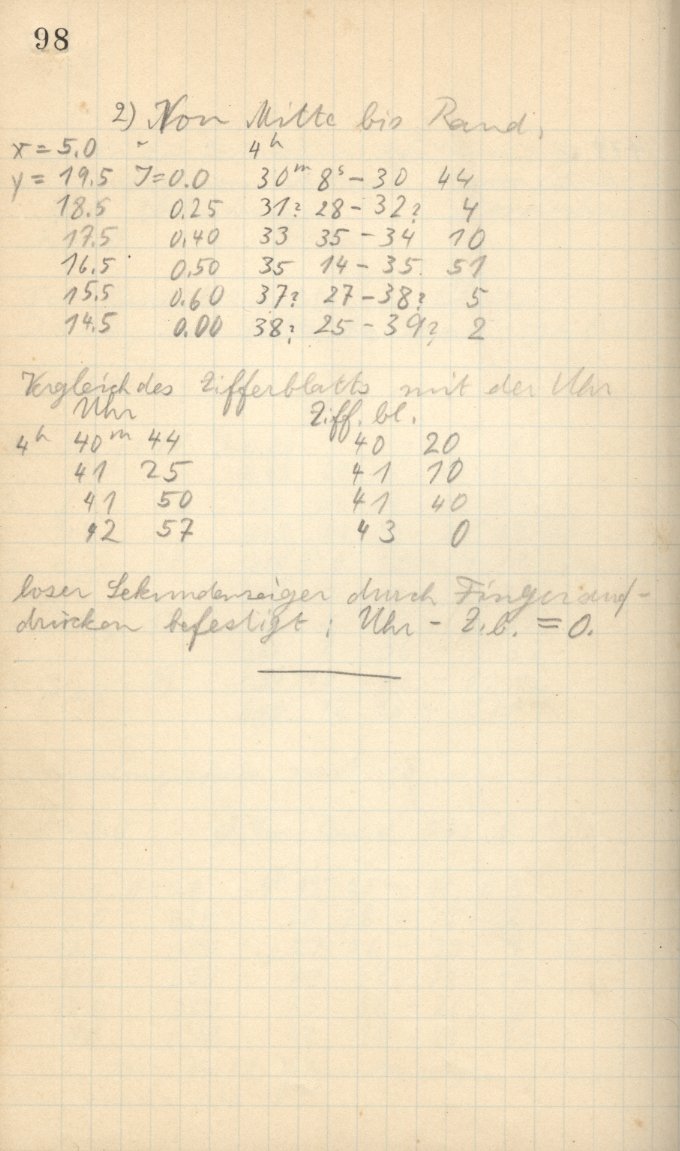 98
2) Von Mitte bis Rand.
x = 5.0 " 4h
y = 19.5 J=0.0 30m 8s – 30 44
18.5 0.25 31? 28 – 32? 4
17.5 0.40 33 35 – 34 10
16.5 0.50 35 14 – 35 51
15.5 0.60 37? 27 – 38? 5
14.5 0.00 38? 25 – 39? 2
Vergleich des Zifferblatts mit der Uhr
Uhr Ziff. bl.
4h 40m 44 40 20
41 25 41 10
41 50 41 40
42 57 43 0
loser Sekundenzeiger durch Fingerauf-
drücken befestigt; Uhr – Z.b. = 0.